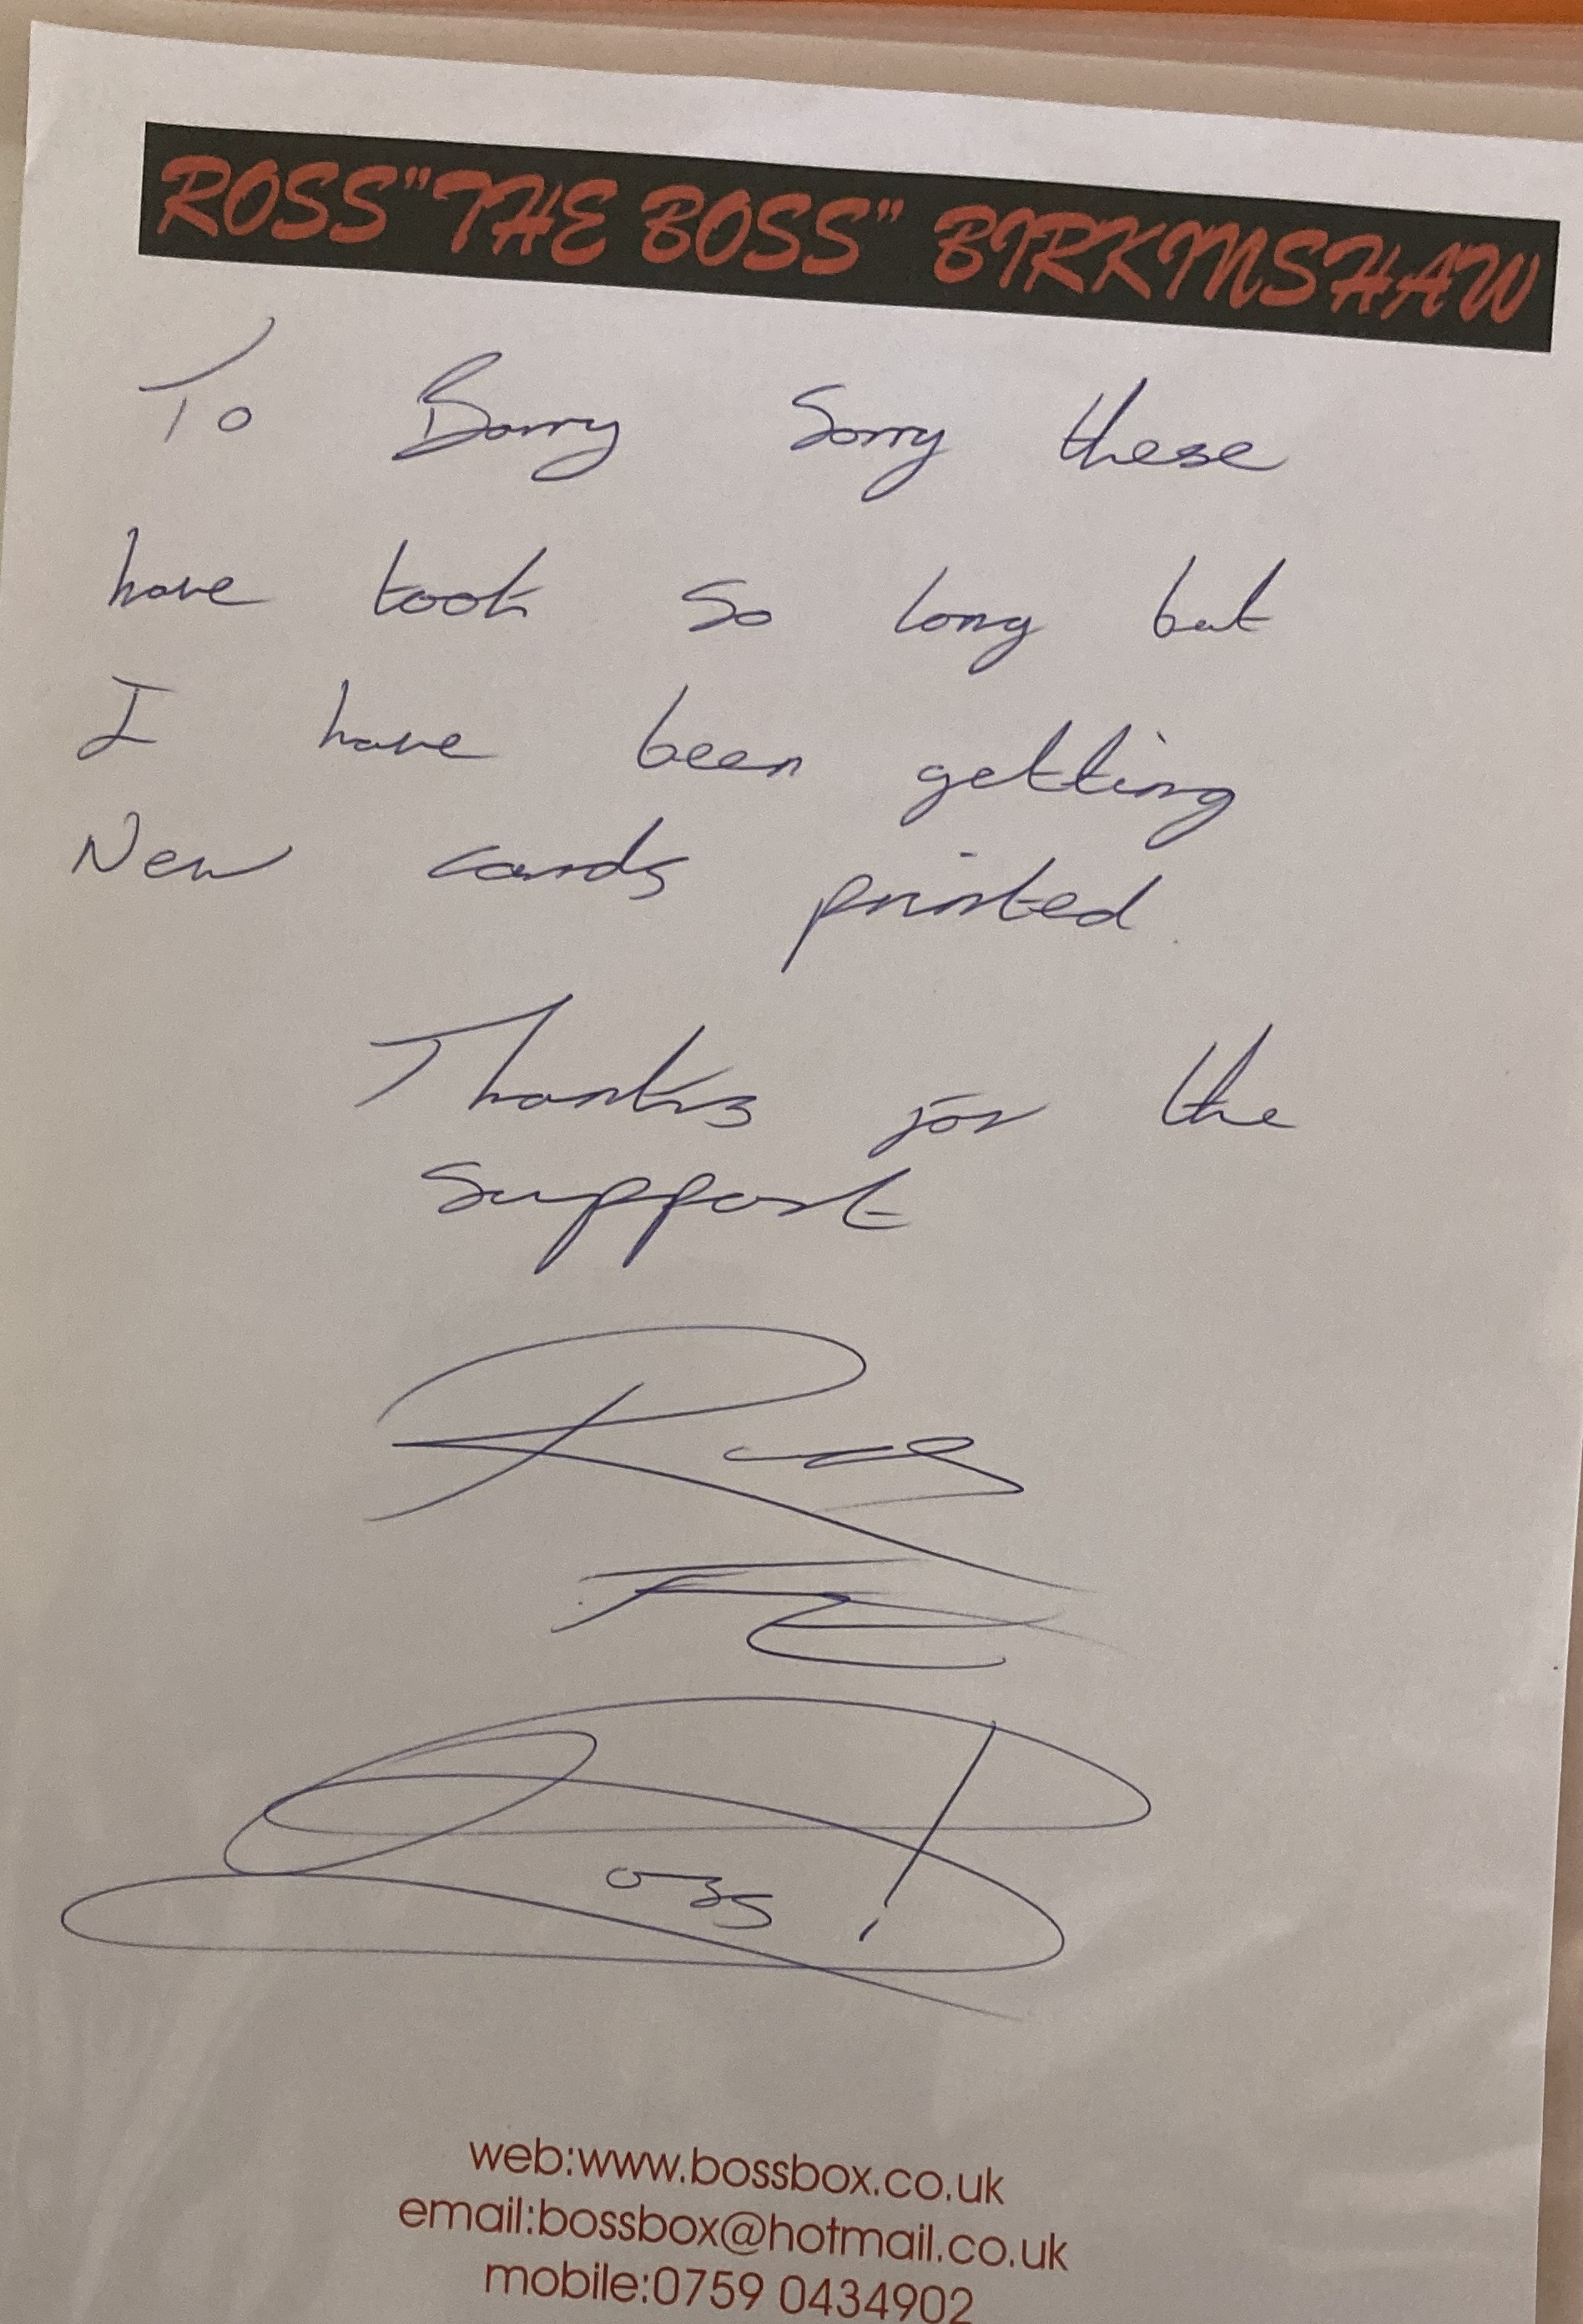 ROSS"THE BOSS" BIRKINSHAW
To Barry Sorry these
have took so long but
I have been getting
New cards printed.
Thanks for the
support
Ross
THE
Boss!
web:www.bossbox.co.uk
email:bossbox@hotmail.co.uk
mobile:0759 0434902